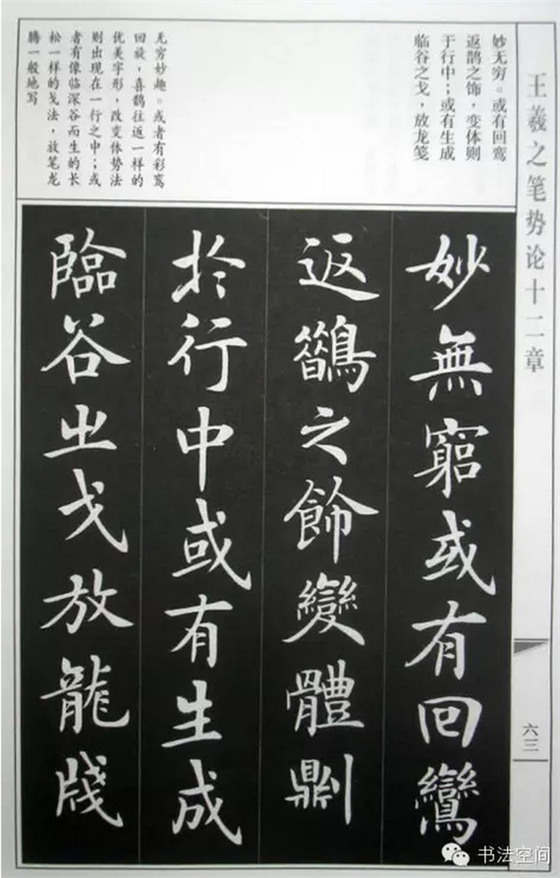 王羲之笔势论十二章
妙无穷。或有回鸾
返鹊之饰，变体则
于行中；或有生成
临谷之戈，放龙笺
无穷妙趣。或者有彩鸾
回旋，喜鹊往返一样的
优美字形，改变体势法
则出现在一行之中；或
者有像临深谷而生的长
松一样的戈法，放笔龙
腾一般地写
妙無窮或有回鸞
返鵲之飾變體則
於行中或有生成
臨谷㞢戈放龍牋
六三
书法空间